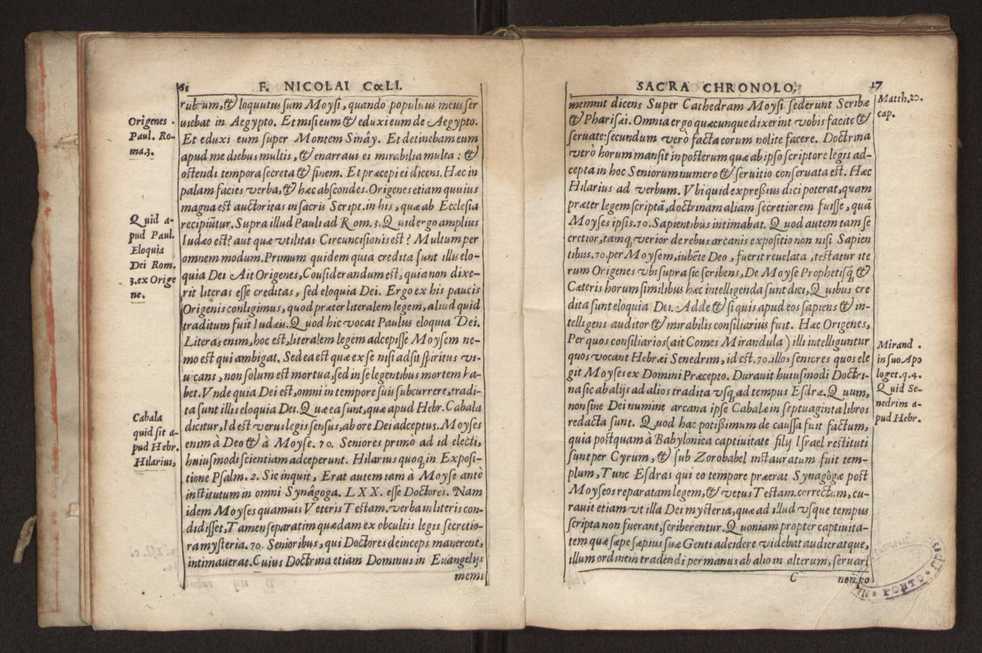 F. NICOLAI CœLI.
rubum, & loquutus sum Moysi, quando populus meus ser
uiebat in Aegypto. Et misi eum & eduxi eum de Aegypto.
Et eduxi eum super Montem Sinây. Et detinebam eum
apud me diebus multis, & enarraui ei mirabilia multa: &
ostendi tempora secreta & finem. Et præcepi ei dicens. Hæc in
palam facies verba, & hæc abscondes. Origenes etiam quuius
magna est auctoritas in sacris Script. in his, quæ ab Ecclesia
recipiũtur. Supra illud Pauli ad Rom. 3. Quid ergo amplius
Iudæo est? aut quæ vtilitas Circuncisionis est? Multum per
omnem modum. Primum quidem quia credita sunt illis elo-
quia Dei Ait Origenes, Considerandum est, quia non dixe-
rit literas esse creditas, sed eloquia Dei. Ergo ex his paucis
Origenis colligimus, quod præter literalem legem, aliud quid
traditum fuit Iudæis. Quod hic vocat Paulus eloquia Dei.
Literas enim, hoc est, literalem legem adcepisse Moysem ne-
mo est qui ambigat. Sed ea est quæ ex se nisi adsit spiritus vi-
uicans, non solum est mortua, sed in se legentibus mortem ha-
bet. Vnde quia Dei est, omni in tempore suis subcurrere, tradi-
ta sunt illis eloquia Dei. Quæ ea sunt, quæ apud Hebr. Cabala
dicitur, Id est verus legis sensus, ab ore Dei adceptus. Moyses
enim à Deo & à Moyse. 70. Seniores primò ad id electi,
huiusmodi scientiam adceperunt. Hilarius quoq; in Exposi-
tione Psalm. 2. Sic inquit, Erat autem iam à Moyse antè
institutum in omni Synâgoga. LXX. esse Doctores. Nam
idem Moyses quamuis Veteris Testam. verba in literis con-
didisset, Tamen separatim quædam ex obcultis legis secretio-
ra mysteria. 70. Senioribus, qui Doctores deinceps manerent,
intimauerat. Cuius Doctrina etiam Dominus in Euangelijs
memi
Origenes.
Paul. Ro-
ma. 3.
Quid a-
pud Paul.
Eloquia
Dei Rom.
3. ex Orige
ne.
Cabala
quid sit a-
pud Hebr.
Hilarius,
SACRA CHRONOLO,
17
meminit dicens Super Cathedram Moysi sederunt Scribæ
& Pharisæi. Omnia ergo quæcunque dixerint vobis facite &
seruate: secundum verò facta eorum nolite facere. Doctrina
verò horum mansit in posterum quæ ab ipso scriptore legis ad-
cepta in hoc Seniorum numero & seruitio conseruata est. Hæc
Hilarius ad verbum. Vbi quid expreßius dici poterat, quam
præter legem scriptã, doctrinam aliam secretiorem fuisse, quã
Moyses ipsis. 70. Sapientibus intimabat. Quod autem tam se
cretior, tamq; verior de rebus arcanis expositio non nisi Sapien
tibus. 70. per Moysem, iubẽte Deo, fuerit reuelata, testatur ite
rum Origenes vbi supra sic scribens, De Moyse Prophetisq; &
Cæteris horum similibus hæc intelligenda sunt dici, Quibus cre
dita sunt eloquia Dei. Adde & si quis apud eos sapiens & in-
telligens auditor & mirabilis consiliarius fuit. Hæc Origenes,
Per quos consiliarios (ait Comes Mirandula) illi intelliguntur
quos vocant Hebræi Senedrim, id est. 70. illos seniores quos ele
git Moyses ex Domini Præcepto. Durauit huiusmodi Doctri-
na sic ab alijs ad alios tradita vsq; ad tempus Esdræ. Quum,
non sine Dei numine arcana ipsæ Cabalæ in septuaginta libros
redacta sunt. Quod hac potißimum de caussa fuit factum,
quia postquam à Babylonica captiuitate filij Israel restituti
sunt per Cyrum, & sub Zorobabel instauratum fuit tem-
plum, Tunc Esdras qui eo tempore præerat Synagôgæ post
Moyseos reparatam legem, & vetus Testam. correctum, cu-
rauit etiam vt illa Dei mysteria, quæ ad illud vsque tempus
scripta non fuerant, scriberentur. Quoniam propter captiuita-
tem quæ sæpe sæpius suæ Genti adcidere videbat audieratque,
illum ordinem tradendi per manus ab alio in alterum, seruari
C
non po
Matth. 20.
cap.
Mirand.
in suo Apo
loget. q. 4.
Quid Se-
nedrim a-
pud Hebr.
PORTO